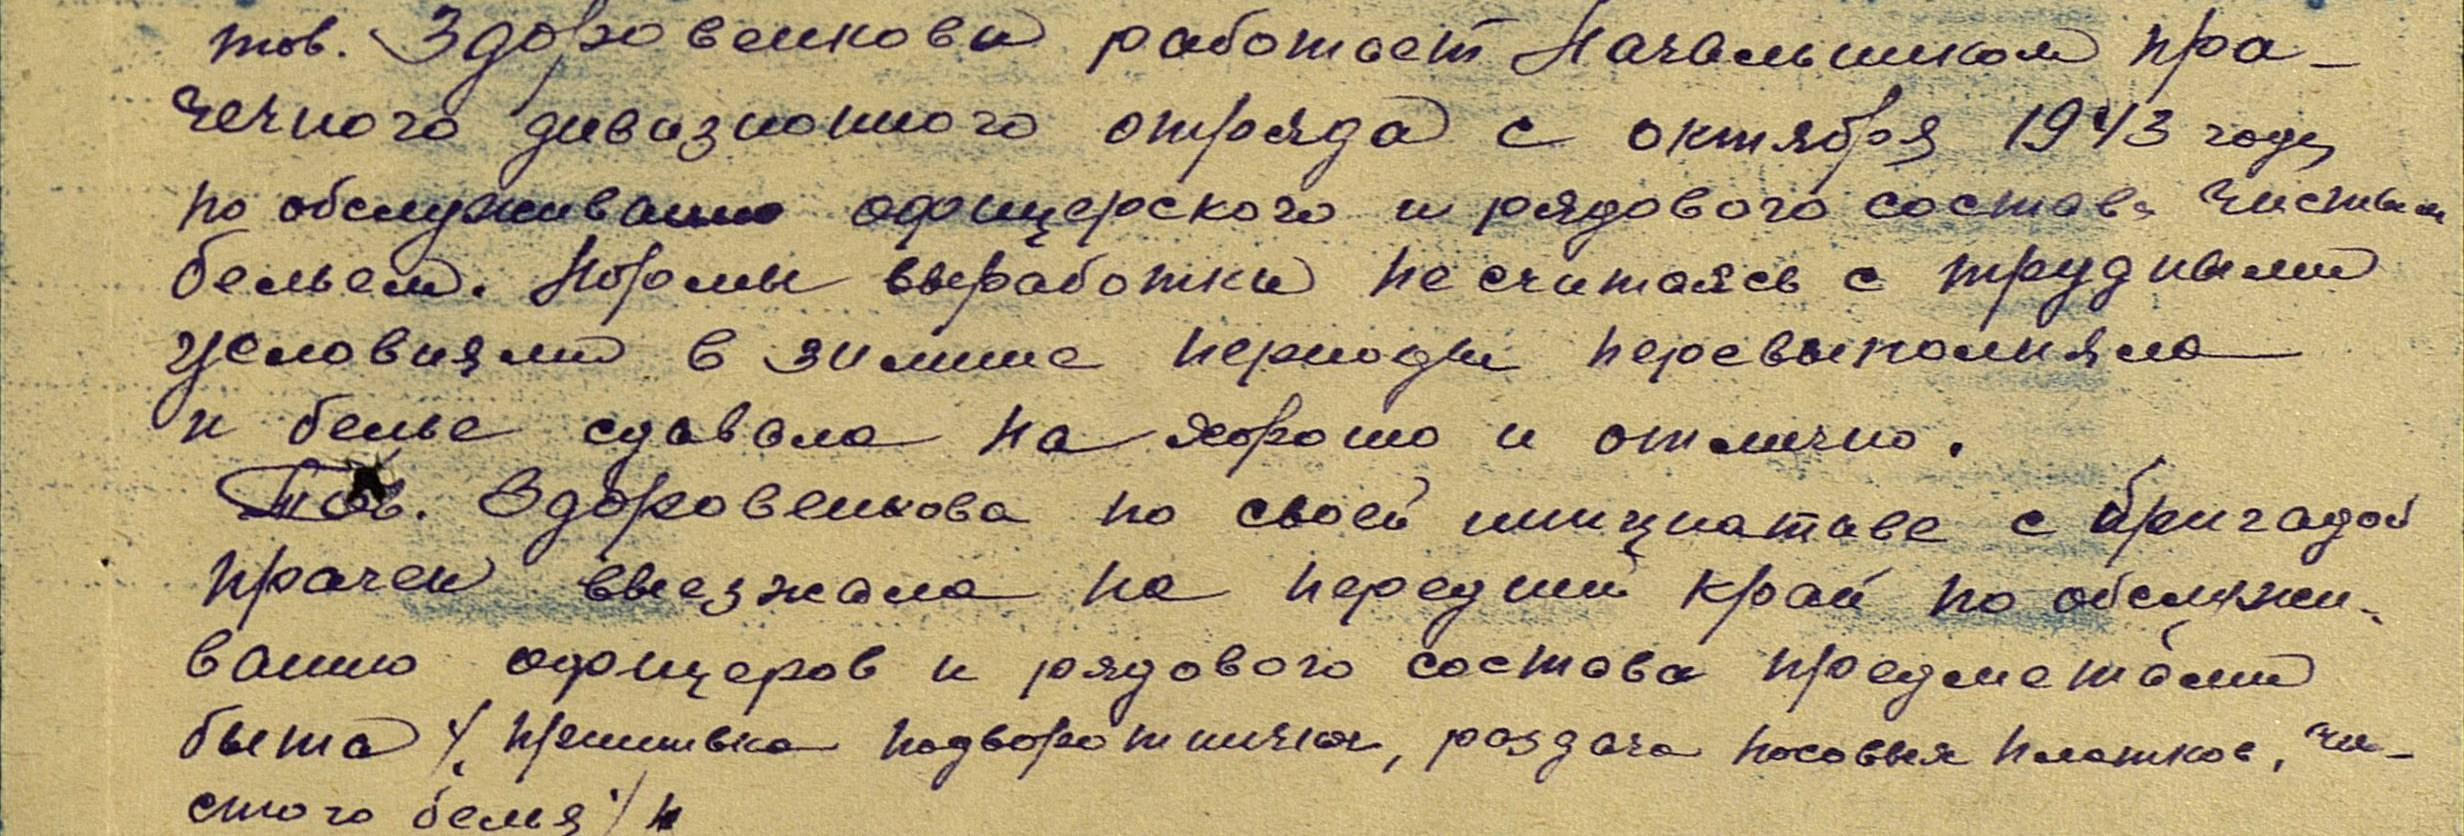 тов. Здоровенкова работает Начальником пра-
чечного дивизионного отряда с октября 1943 года
по обслуживанию офицерского и рядового состава чистым
бельем. Нормы выработки не считаясь с трудными
условиями в зимние периоды перевыполняла
и белье сдавала на хорошо и отлично.
Тов. Здоровенкова по своей инициативе с бригадой
прачек выезжала на передний край по обслужи-
ванию офицеров и рядового состава предметами
быта /пришивка подворотничков, раздача носовых платков, чи-
стого белья/